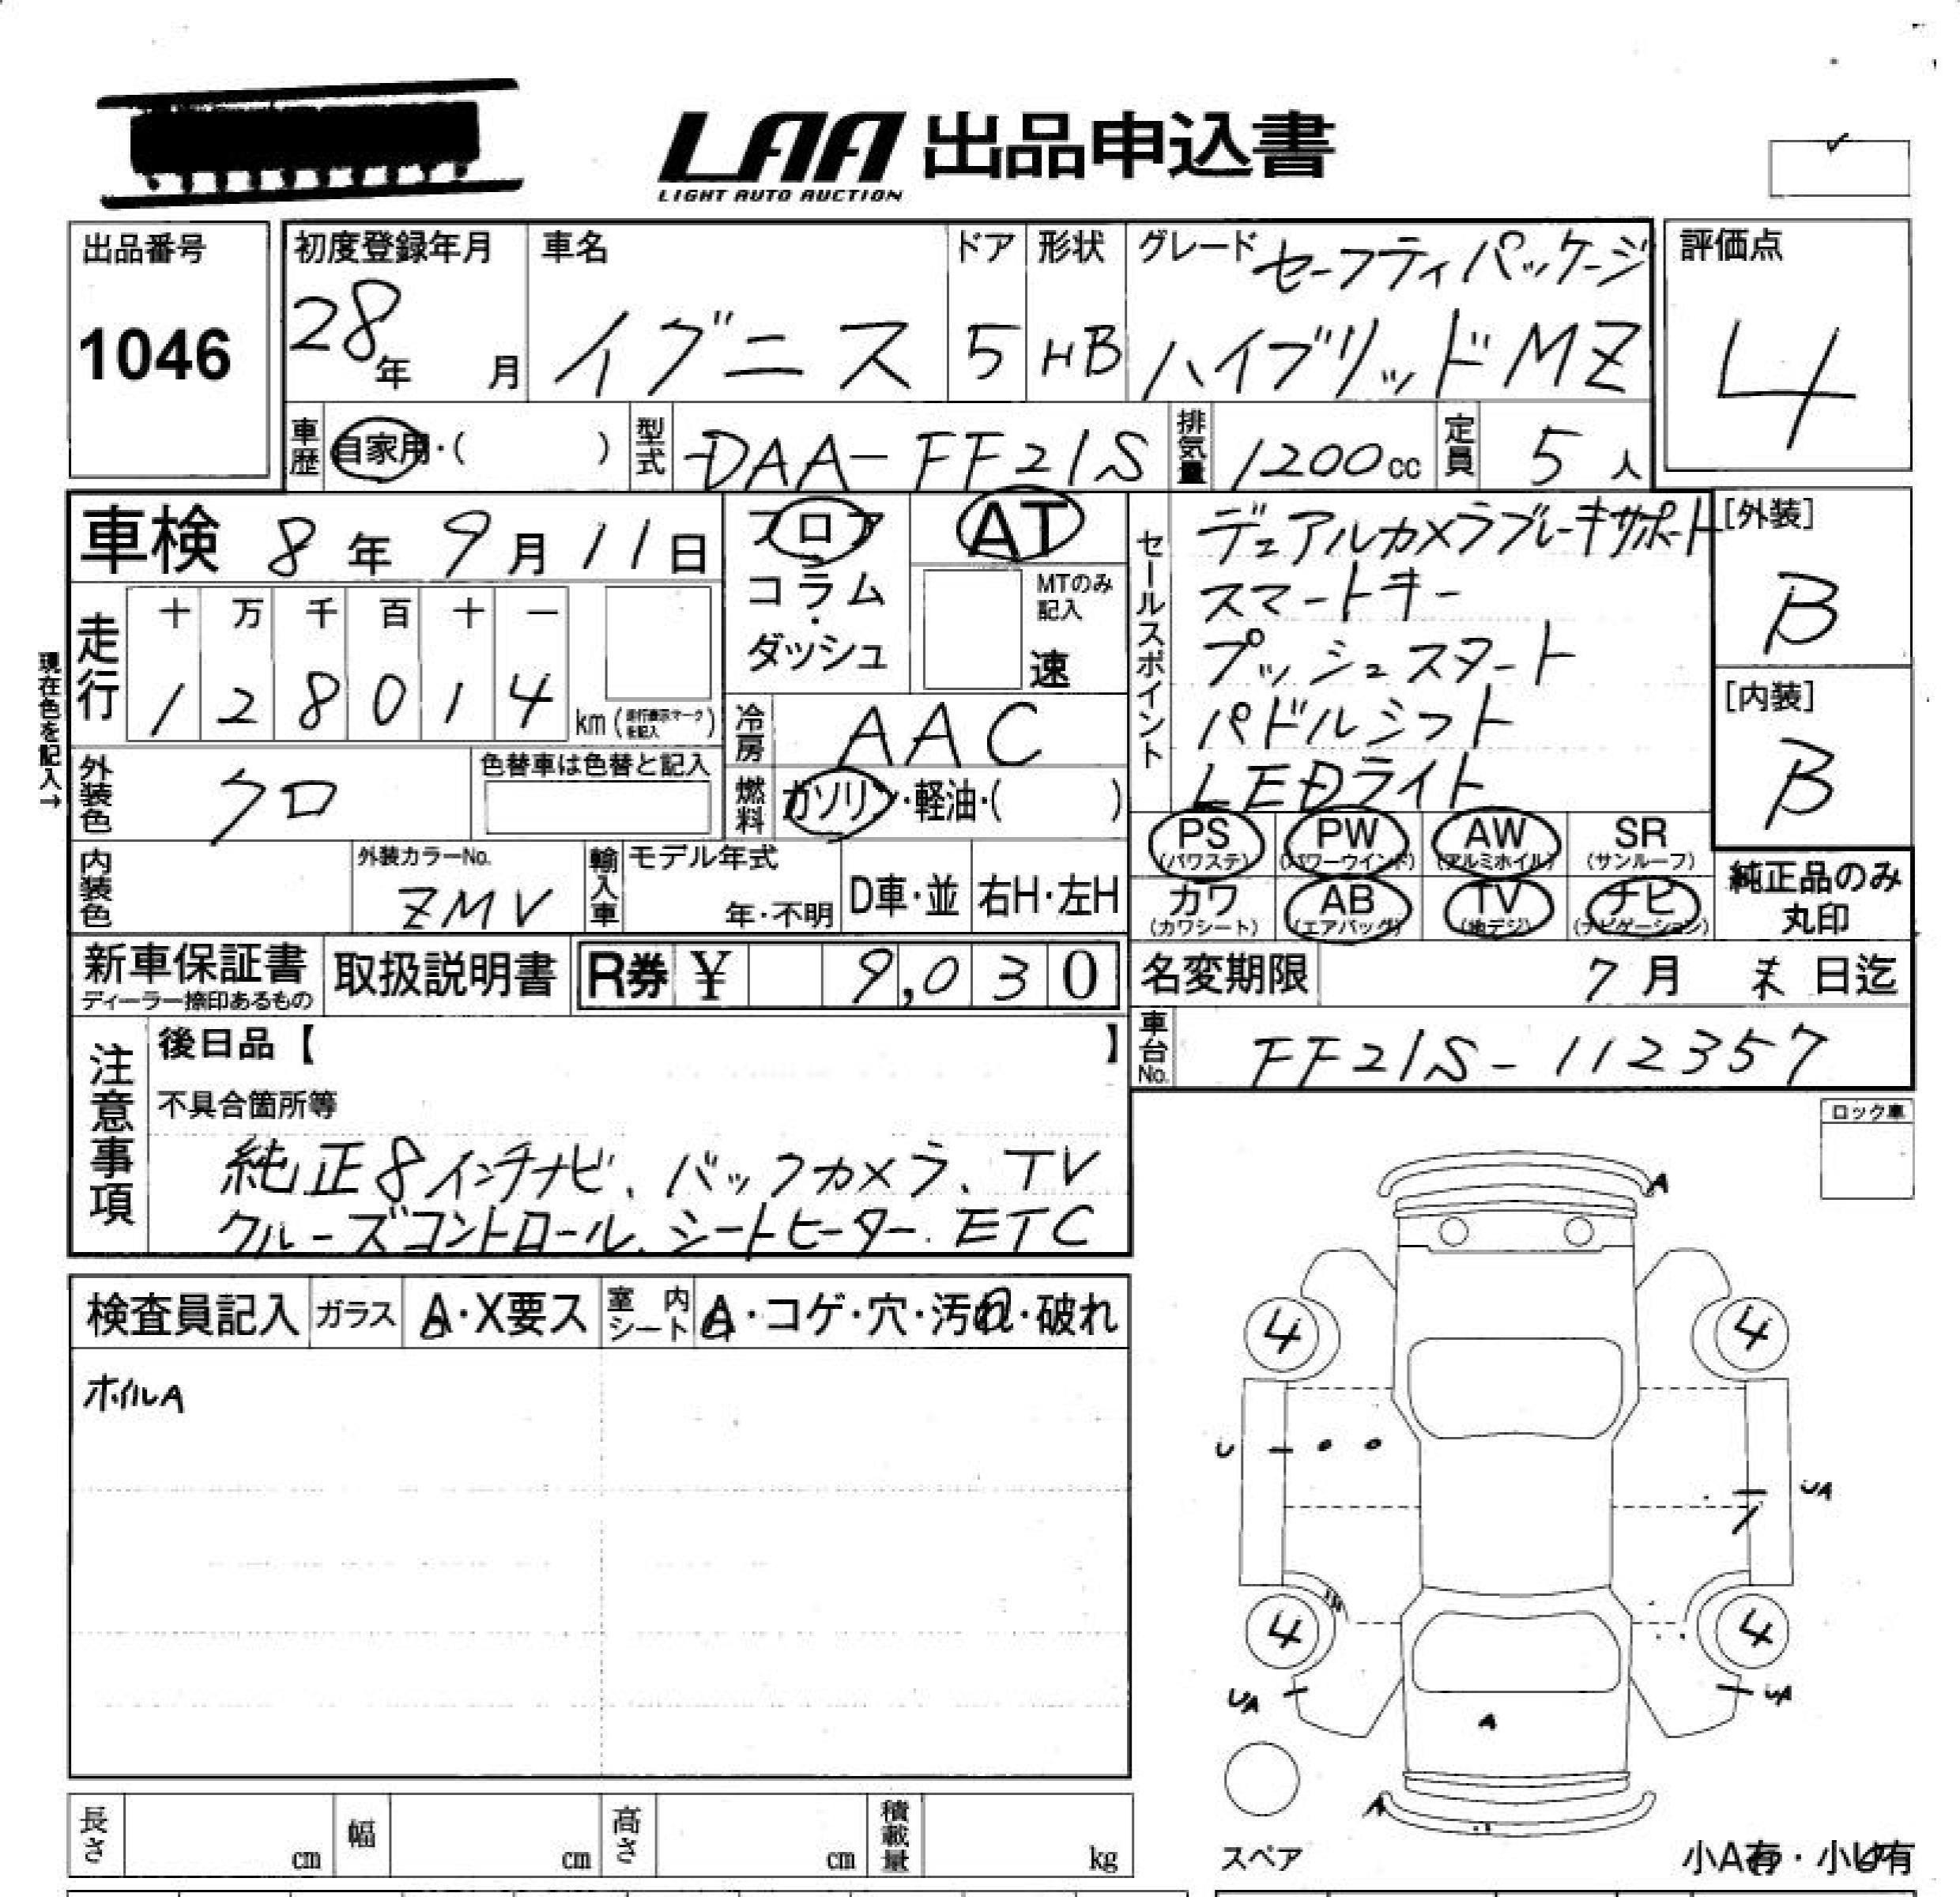 LAA 出品申込書
LIGHT AUTO AUCTION
出品番号
1046
初度登録年月
28年 月
車名
イグニス
ドア
5
形状
HB
グレード セーフティパッケージ
ハイブリッドMZ
評価点
4
車歴 自家用・( )
型式 DAA-FF21S
排気量 1200cc
定員 5人
車検 8年9月11日
フロア
コラム
・
ダッシュ
AT
MTのみ
記入
速
セールスポイント
デュアルカメラブレーキサポート
スマートキー
プッシュスタート
パドルシフト
LEDライト
[外装]
B
[内装]
B
現在色を記入→
走行
十 万 千 百 十 一
1 2 8 0 1 4 km (走行表示マークを記入)
冷房 AAC
外装色 クロ
色替車は色替と記入
燃料 ガソリン・軽油・( )
PS (パワステ) PW (パワーウインド) AW (アルミホイル) SR (サンルーフ)
カワ (カワシート) AB (エアバッグ) TV (地デジ) ナビ (ナビゲーション)
純正品のみ
丸印
内装色
外装カラーNo.
ZMV
輸入車
モデル年式
年・不明
D車・並
右H・左H
新車保証書
ディーラー捺印あるもの
取扱説明書
R券 ¥ 9,030
名変期限 7月 末日迄
車台No. FF21S-112357
注意事項
後日品【 】
不具合箇所等
純正8インチナビ、バックカメラ、TV
クルーズコントロール、シートヒーター、ETC
ロック車
検査員記入 ガラス A・X要ス 室内シート A・コゲ・穴・汚れ・破れ
ホイルA
A
4 4
U
UA
4 4
UA UA
A
A
スペア
小A有・小U有
長さ cm 幅 cm 高さ cm 積載量 kg